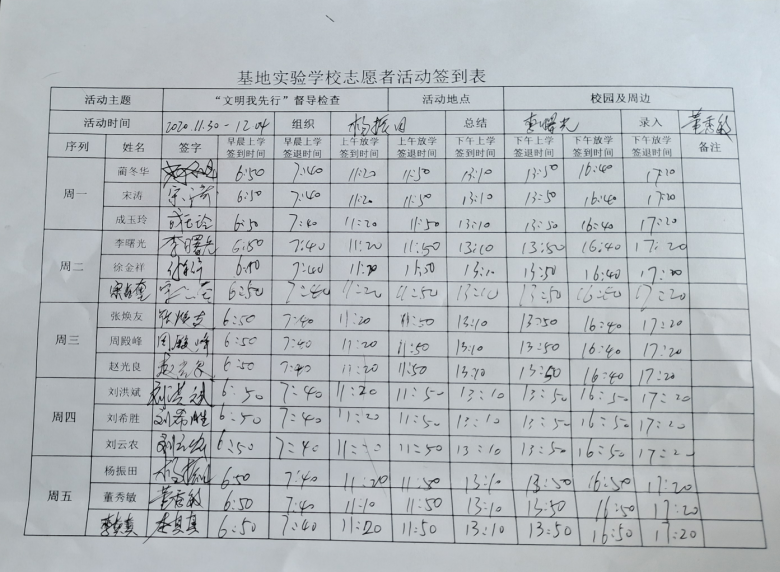 基地实验学校志愿者活动签到表
活动主题 “文明我先行”督导检查 活动地点 校园及周边
活动时间 2020.11.30-12.04 组织 杨振田 总结 李曙光 录入 董秀敏
序列 姓名 签字 早晨上学签到时间 早晨上学签退时间 上午放学签到时间 上午放学签退时间 下午上学签到时间 下午上学签退时间 下午放学签到时间 下午放学签退时间 备注
周一 蔺冬华 6:50 7:40 11:20 11:50 13:10 13:50 16:40 17:20
宋涛 宋涛 6:50 7:40 11:20 11:50 13:10 13:50 16:40 17:20
成玉玲 成玉玲 6:50 7:40 11:20 11:50 13:10 13:50 16:40 17:20
周二 李曙光 李曙光 6:50 7:40 11:20 11:50 13:10 13:50 16:40 17:20
徐金祥 6:50 7:40 11:20 11:50 13:10 13:50 16:40 17:20
6:50 7:40 11:20 11:50 13:10 13:50 16:50 17:20
周三 张焕友 张焕友 6:50 7:40 11:20 11:50 13:10 13:50 16:40 17:20
周殿峰 周殿峰 6:50 7:40 11:20 11:50 13:10 13:50 16:40 17:20
赵光良 6:50 7:40 11:20 11:50 13:10 13:50 16:40 17:20
周四 刘洪斌 刘洪斌 6:50 7:40 11:20 11:50 13:10 13:50 16:50 17:20
刘希胜 刘希胜 6:50 7:40 11:20 11:50 13:10 13:50 16:50 17:20
刘云农 6:50 7:40 11:20 11:50 13:10 13:50 16:50 17:20
周五 杨振田 杨振田 6:50 7:40 11:20 11:50 13:10 13:50 16:50 17:20
董秀敏 董秀敏 6:50 7:40 11:10 11:50 13:10 13:50 16:50 17:20
6:50 7:40 11:20 11:50 13:10 13:50 16:50 17:20